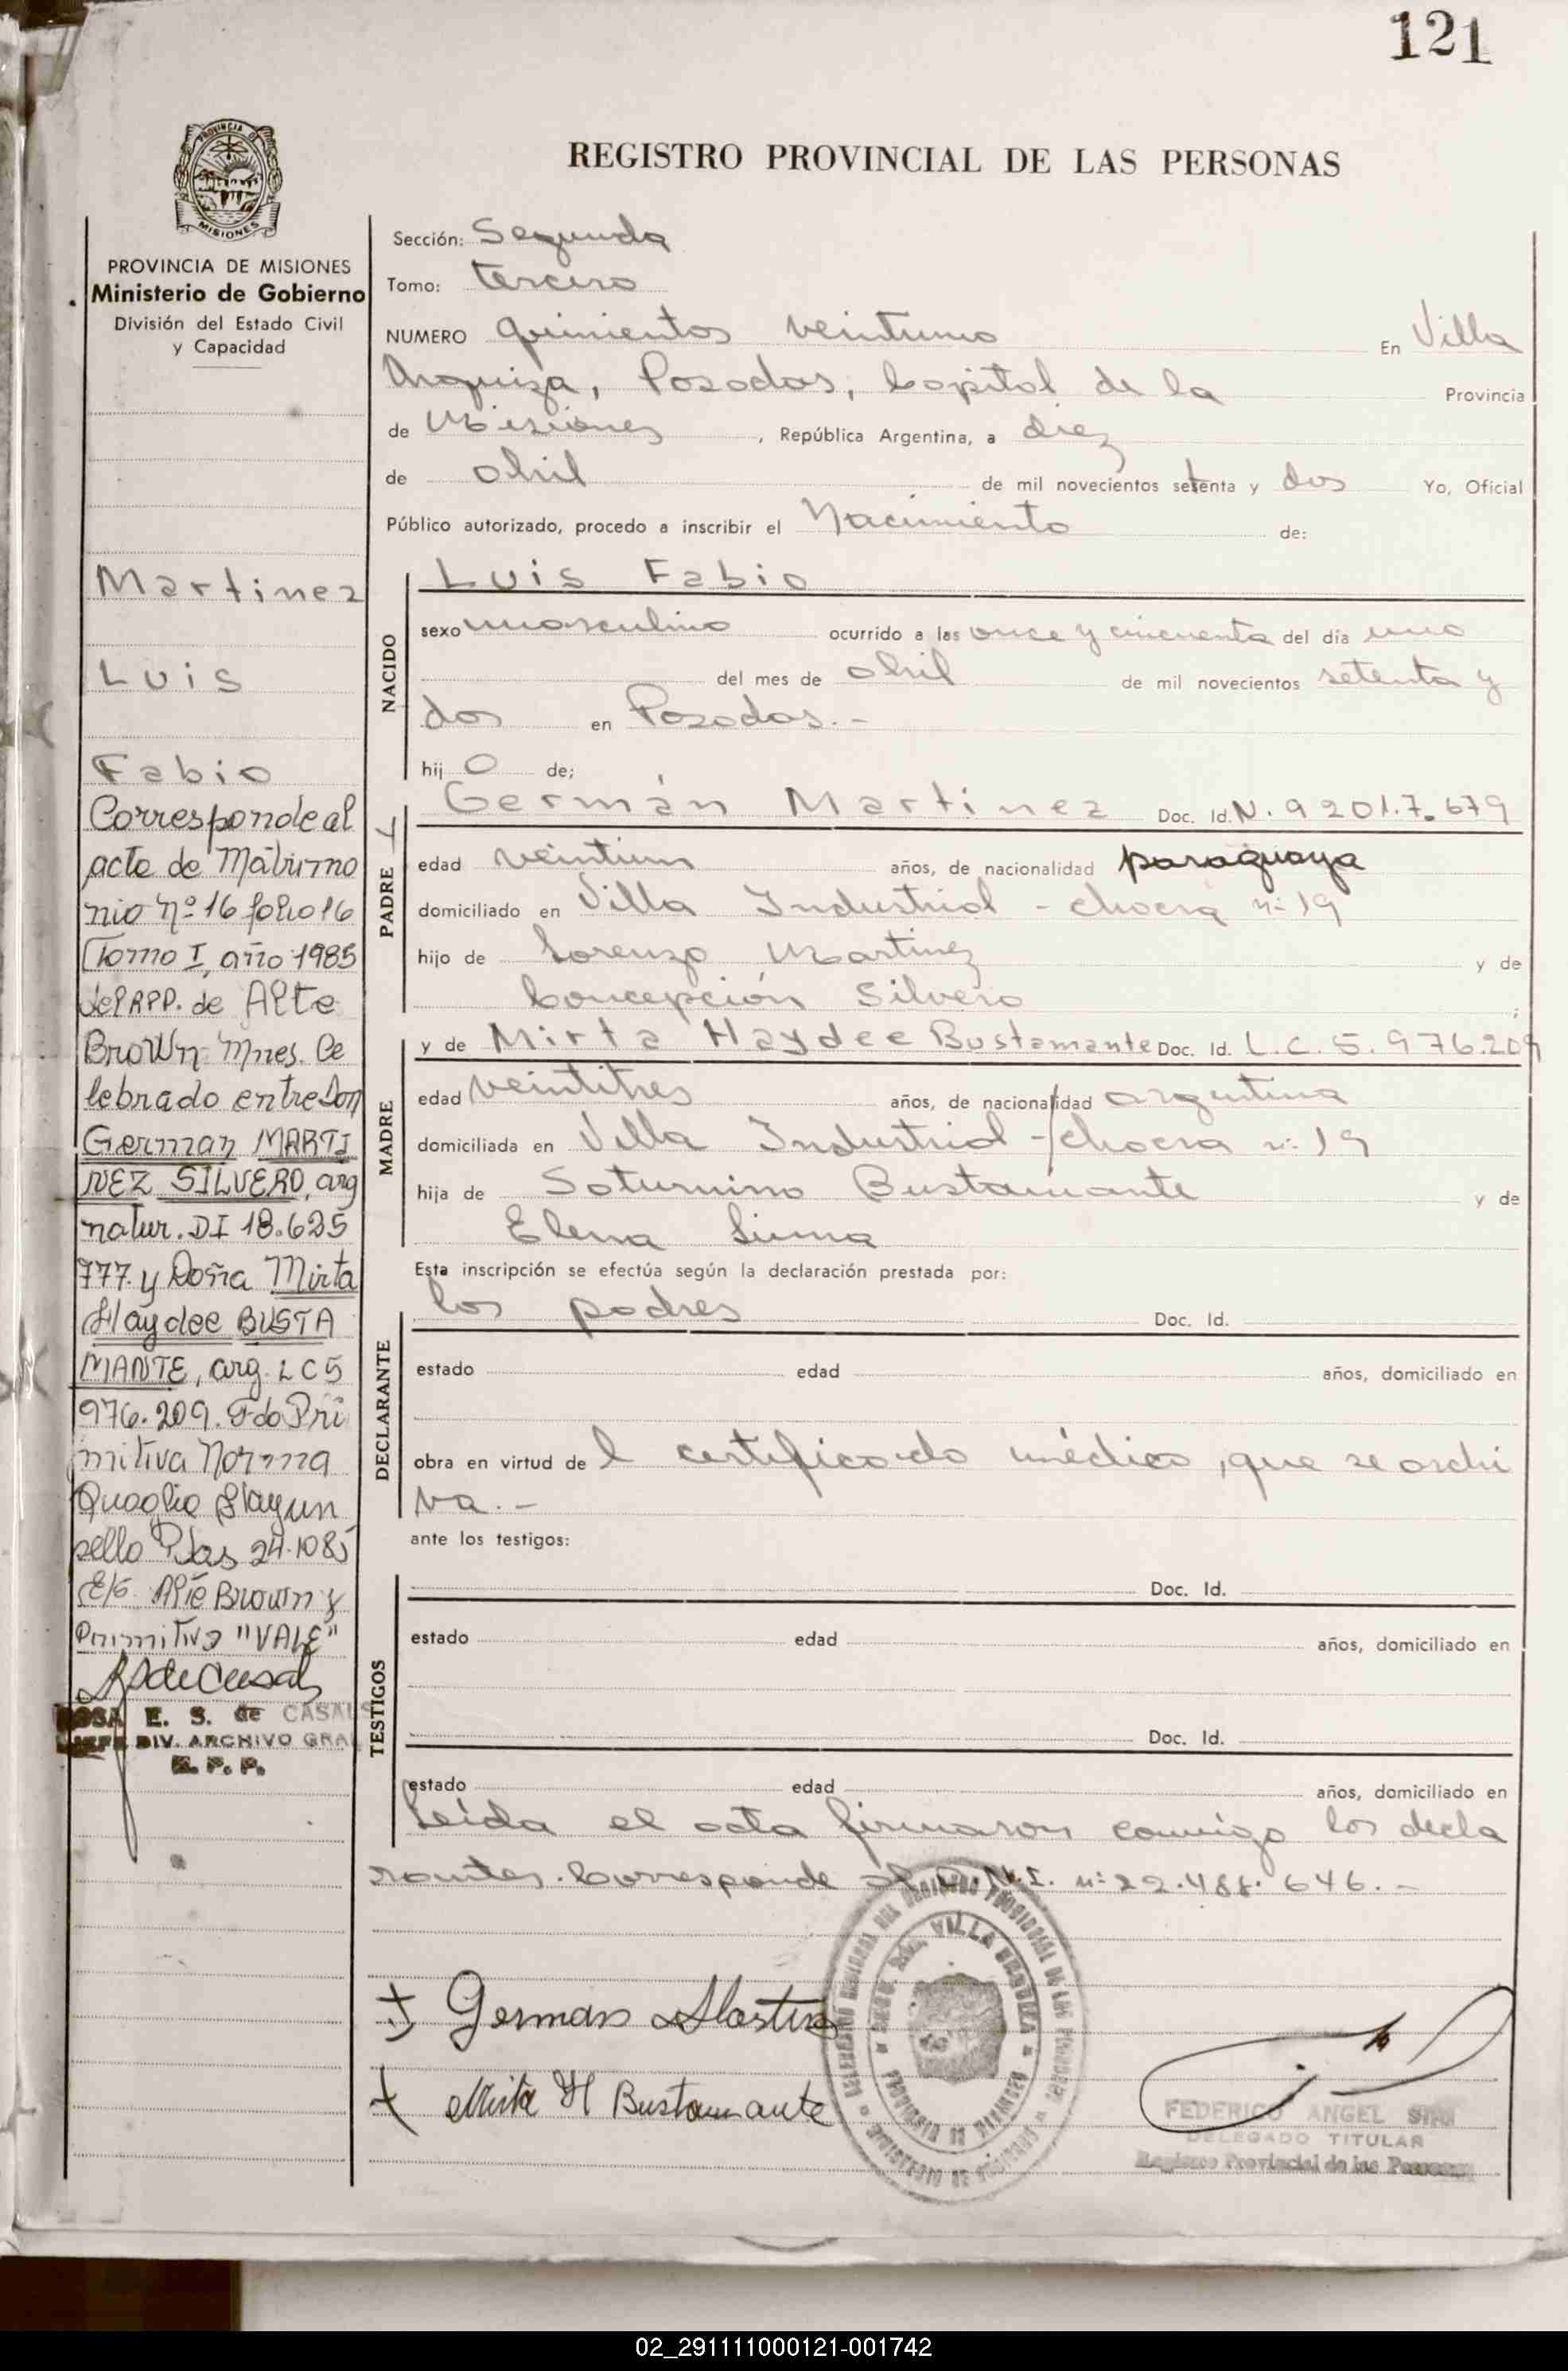 121
PROVINCIA DE
MISIONES
REGISTRO PROVINCIAL DE LAS PERSONAS
PROVINCIA DE MISIONES
Ministerio de Gobierno
División del Estado Civil
y Capacidad
Martinez
Luis
Fabio
Corresponde al
acta de Matrimo
nio nº 16 folio 16
Tomo I, año 1985
del APP. de Alte
Brown Mnes. Ce
lebrado entre Don
German MARTI
NEZ SILVERO, arg
natur. DI 18.625
777 y Doña Mirta
Haydee BUSTA
MANTE, arg. LC 5
976.209. Fdo Pri
mitiva Norma
Quaglia Hay un
sello Pdas 24.10 85
E/S Alte Brown y
Primitiva "VALE"
ROSA E. S. de CASALS
JEFE DIV. ARCHIVO GRAL
R. P. P.
Sección: Segunda
Tomo: tercero
NUMERO quinientos veintiuno En Villa
Urquiza, Posadas, Capital de la Provincia
de Misiones, República Argentina, a diez
de abril de mil novecientos setenta y dos Yo, Oficial
Público autorizado, procedo a inscribir el Nacimiento de:
NACIDO
Luis Fabio
sexo masculino ocurrido a las once y cincuenta del día uno
del mes de abril de mil novecientos setenta y
dos en Posadas.-
hij o de;
PADRE
Germán Martinez Doc. Id. N. 9201.7.679
edad veintiun años, de nacionalidad paraguaya
domiciliado en Villa Industrial - chacra nº 19
hijo de Lorenzo Martinez y de
Concepción Silvero ;
MADRE
y de Mirta Haydee Bustamante Doc. Id. L.C. 5.976.209
edad veintitres años, de nacionalidad argentina
domiciliada en Villa Industrial - chacra nº 19
hija de Saturnino Bustamante y de
Elena
Esta inscripción se efectúa según la declaración prestada por:
DECLARANTE
los padres Doc. Id.
estado edad años, domiciliado en
obra en virtud de l certificado médico, que se archi
va.-
ante los testigos:
TESTIGOS
Doc. Id.
estado edad años, domiciliado en
Doc. Id.
estado edad años, domiciliado en
Leida el acta firmaron conmigo los decla
rantes. Corresponde al D.N.I. nº 22.488.646.-
German Martinez
Mirta H Bustamante
VILLA URQUIZA
PROVINCIA DE MISIONES
FEDERICO ANGEL
DELEGADO TITULAR
Registro Provincial de las Personas
02_291111000121-001742